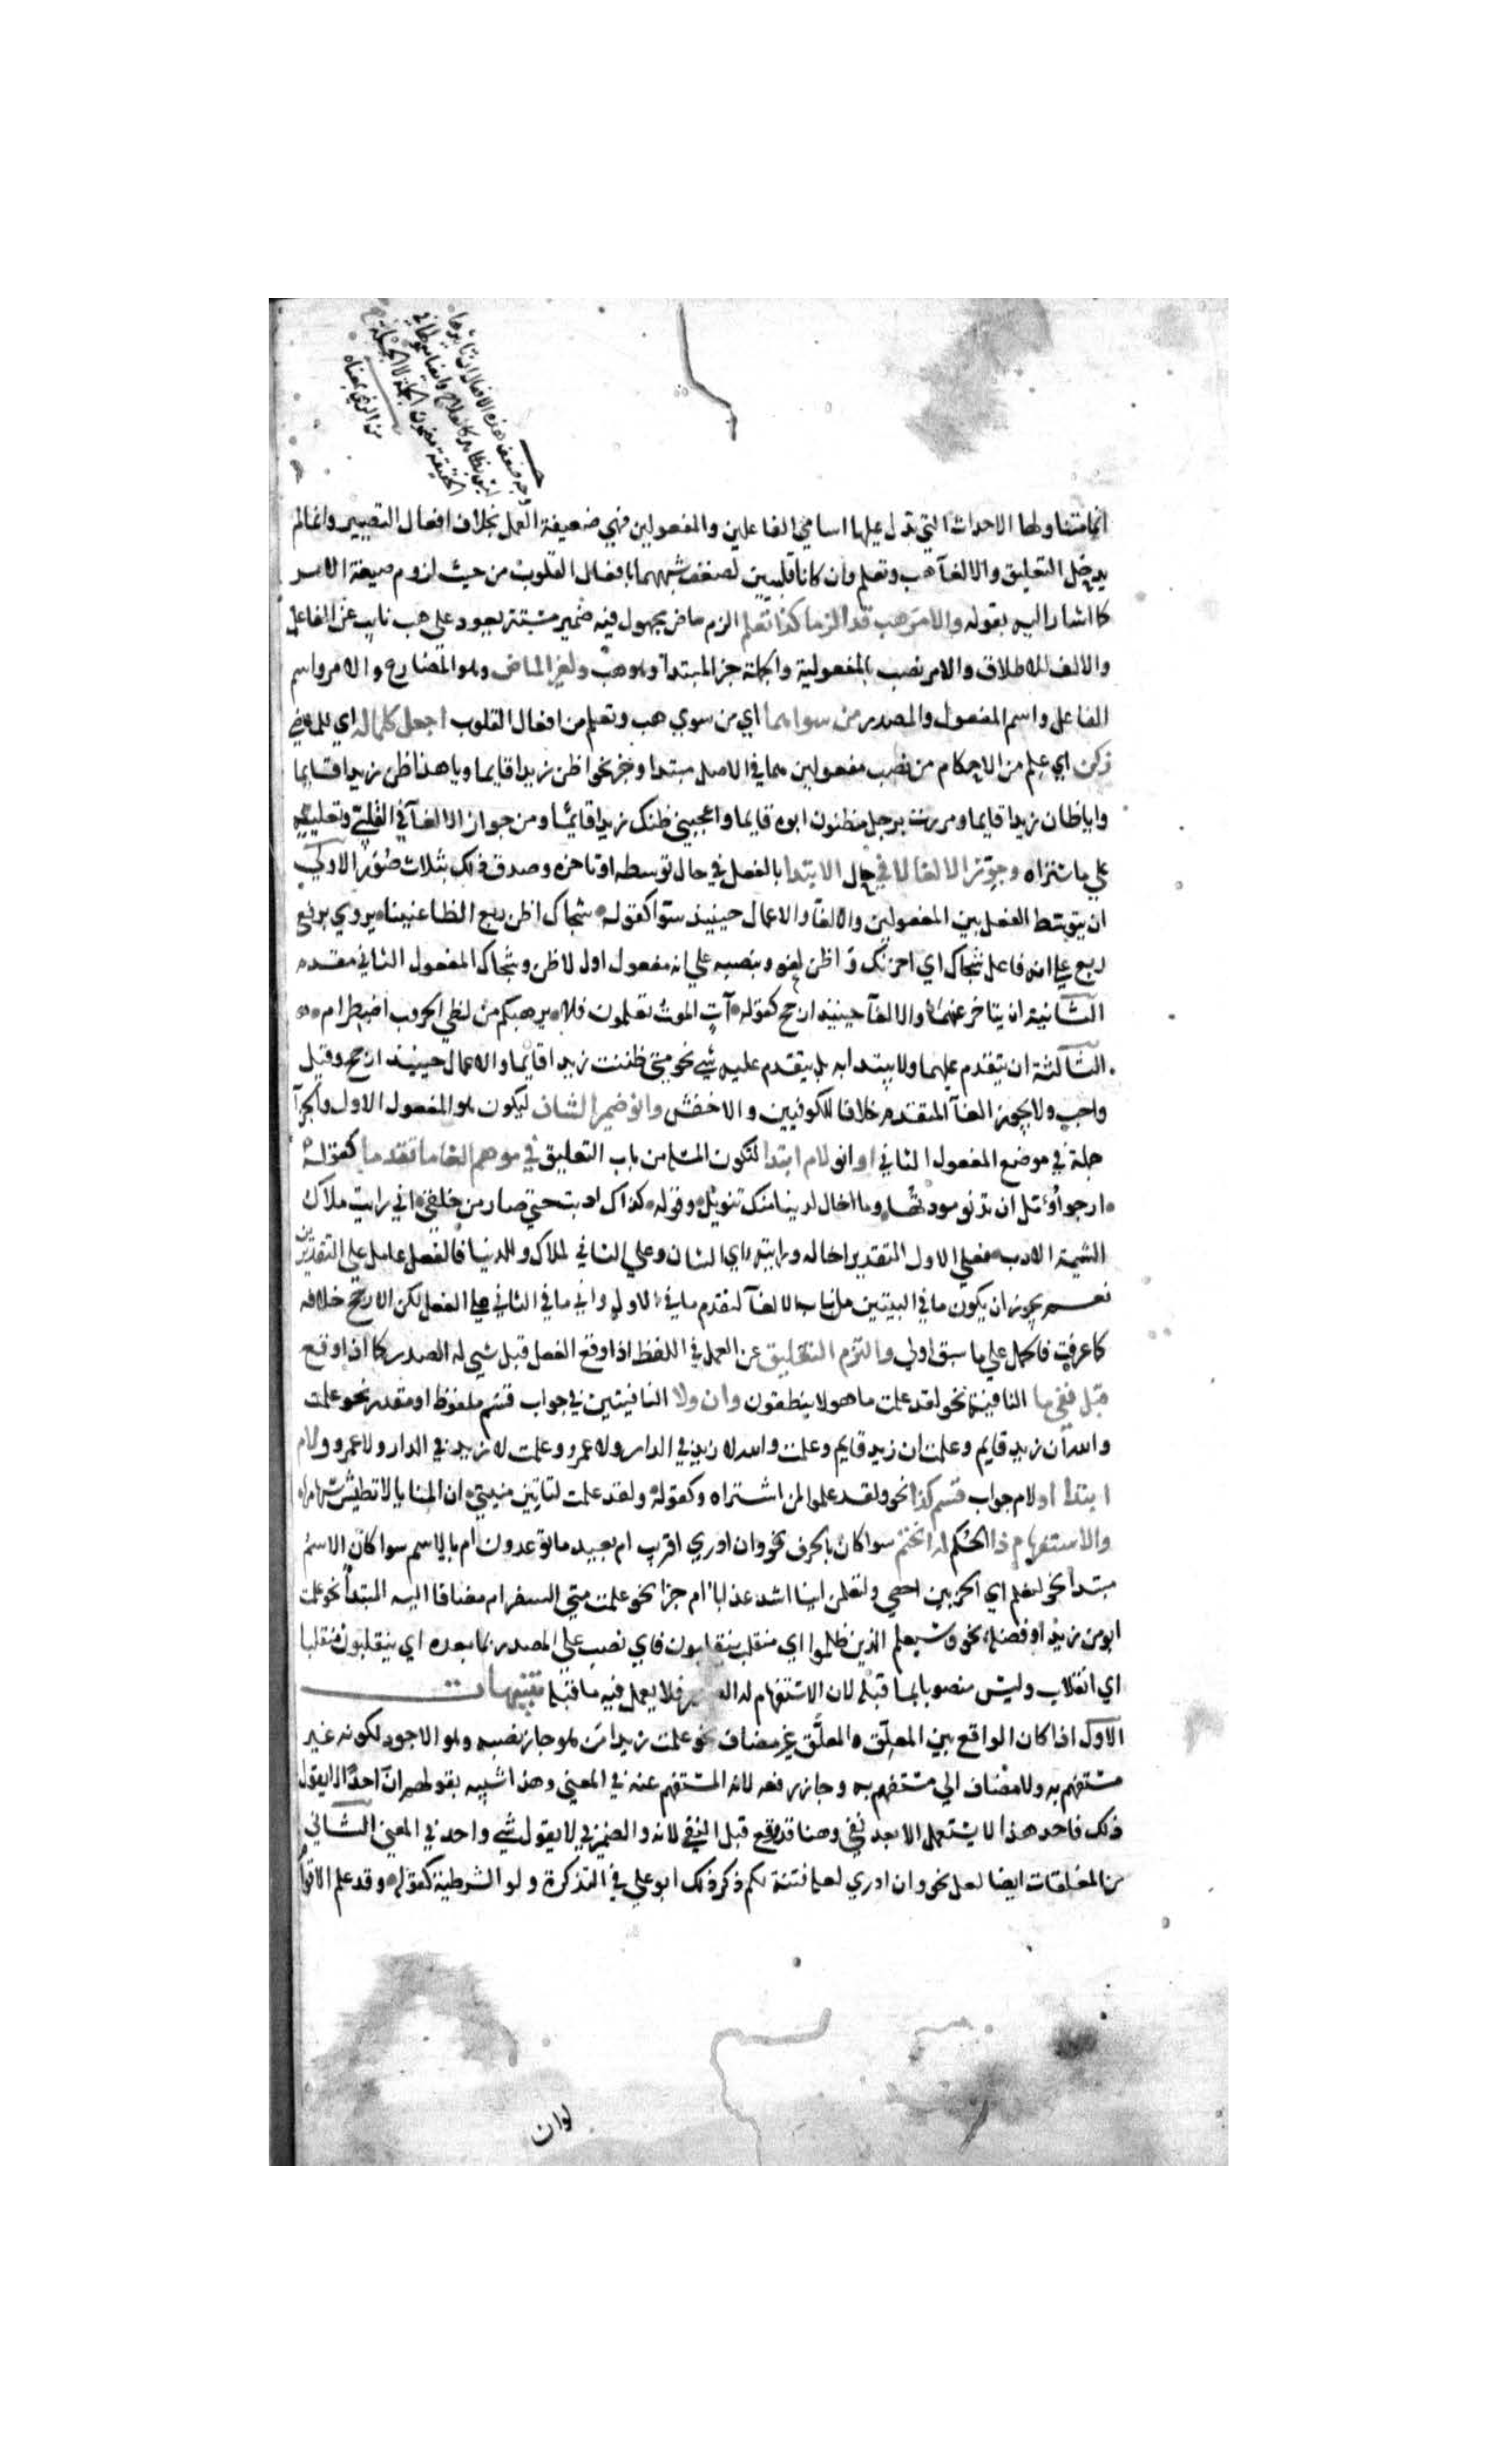 وجه ضعف هذه الافعال ان تاثيرها
ليس بظاهر كالعلاج وايضا متعلقها في
الحقيقة مضمون الجملة لا الجملة
من الرضي بمعناه
انما متناولها الاحداث التي تدل عليها اسامي الفاعلين والمفعولين فهي ضعيفة العمل بخلاف افعال التصيير وانما لم
يدخل التعليق والالغآ هب وتعلم وان كانا قلبيين لضعف شبههما بافعال القلوب من حيث لزوم صيغة الامر
كما اشار اليه بقوله والامر هب قد الزما كذا تعلم الزم ماض مجهول فيه ضمير مستتر يعود على هب نايب عن الفاعل
والالف للاطلاق والامر نصب بالمفعولية والجملة خبر المبتدا وهو هب ولغير الماض وهو المضارع والامر واسم
الفاعل واسم المفعول والمصدر من سواهما اي من سوي هب وتعلم من افعال القلوب اجعل كلما له اي للماضي
زكن اي علم من الاحكام من نصب مفعولين هما في الاصل مبتدا وخبر نحو اظن زيدا قايما ويا هذا ظن زيدا قايما
وانا ظان زيدا قايما ومررت برجل مظنون ابوه قايما واعجبني ظنك زيدا قايما ومن جواز الالغآ في القلبي وتعليقه
علي ما ستراه وجوز الالغا لا في حال الابتدا بالفعل في حال توسطه او تاخره وصدق ذلك بثلاث صور الاولي
ان يتوسط الفعل بين المفعولين والالغا والاعمال حينيذ سوا كقوله شجاك اظن ربع الظاعنينا يروي برفع
ربع علي انه فاعل شجاك اي احزنك و اظن لغو وبنصبه علي انه مفعول اول لاظن وشجاك المفعول الثاني مقدم
الثانية ان يتاخر عنهما والالغآ حينيذ ارجح كقوله آت الموت تعلمون فلا يرهبكم من لظي الحروب اضطرام
الثالثة ان يتقدم عليهما ولا يبتدا به بل يتقدم عليه شي نحو متي ظننت زيدا قايما والاعمال حينيذ ارجح وقيل
واجب ولا يجوز الغآ المتقدم خلافا للكوفيين والاخفش وانو ضمير الشان ليكون هو المفعول الاول والجزآ
جملة في موضع المفعول الثاني او انو لام ابتدا لتكون المسئلة من باب التعليق في موهم الغا ما تقدما كقوله
ارجو وآمل ان تدنو مودتها وما اخال لدينا منك تنويل وقوله كذاك ادبت حتي صار من خلقي اني رايت ملاك
الشيمة الادب فعلي الاول التقدير اخاله ورايته اي الشان وعلي الثاني لملاك وللدينا فالفعل عامل علي التقديرين
نعم يجوز ان يكون ما في البيتين من باب الالغآ لتقدم ما في الاول واني ما في الثاني علي الفعل لكن الارجح خلافه
كما عرفت فالحمل علي ما سبق اولي والتزم التعليق عن العمل في اللفظ اذا وقع الفعل قبل شي له الصدر كما اذا وقع
قبل نفي ما النافية نحو لقد علمت ما هولا ينطقون وان ولا النافيتين في جواب قسم ملفوظ او مقدر نحو علمت
والله ان زيد قايم وعلمت ان زيد قايم وعلمت والله لا زيد في الدار ولا عمرو وعلمت لا زيد في الدار ولا عمرو ولام
ابتدا او لام جواب قسم كذا نحو ولقد علموا لمن اشتراه وكقوله ولقد علمت لتاتين منيتي ان المنايا لا تطيش سهامها
والاستفهام ذا الحكم له انحتم سوا كان بالحرف نحو وان ادري اقريب ام بعيد ما توعدون ام بالاسم سوا كان الاسم
مبتدأ نحو لنعلم اي الحزبين احصي ولتعلمن اينا اشد عذابا ام خبرا نحو علمت متي السفر ام مضافا اليه المبتدأ نحو علمت
ابو من زيد او فضلة نحو وسيعلم الذين ظلموا اي منقلب ينقلبون فاي نصب علي المصدر بما بعده اي ينقلبون منقلبا
اي انقلاب وليس منصوبا بما قبله لان الاستفهام له الصدر فلا يعمل فيه ما قبله تنبيهات
الاول اذا كان الواقع بين المعلِّق والمعلَّق غير مضاف نحو علمت زيدا من هو جاز نصبه وهو الاجود لكونه غير
مستفهم به ولا مضاف الي مستفهم به وجاز رفعه لانه المستفهم عنه في المعني وهذا شبيه بقولهم ان احدا لا يقول
ذلك فاحد هذا لا يستعمل الا بعد نفي وهنا قد وقع قبل النفي لانه والضمير في لا يقول شي واحد في المعني الثاني
من المعلقات ايضا لعل نحو وان ادري لعله فتنة لكم ذكر ذلك ابو علي في التذكرة ولو الشرطية كقوله وقد علم الاقوام
لو ان